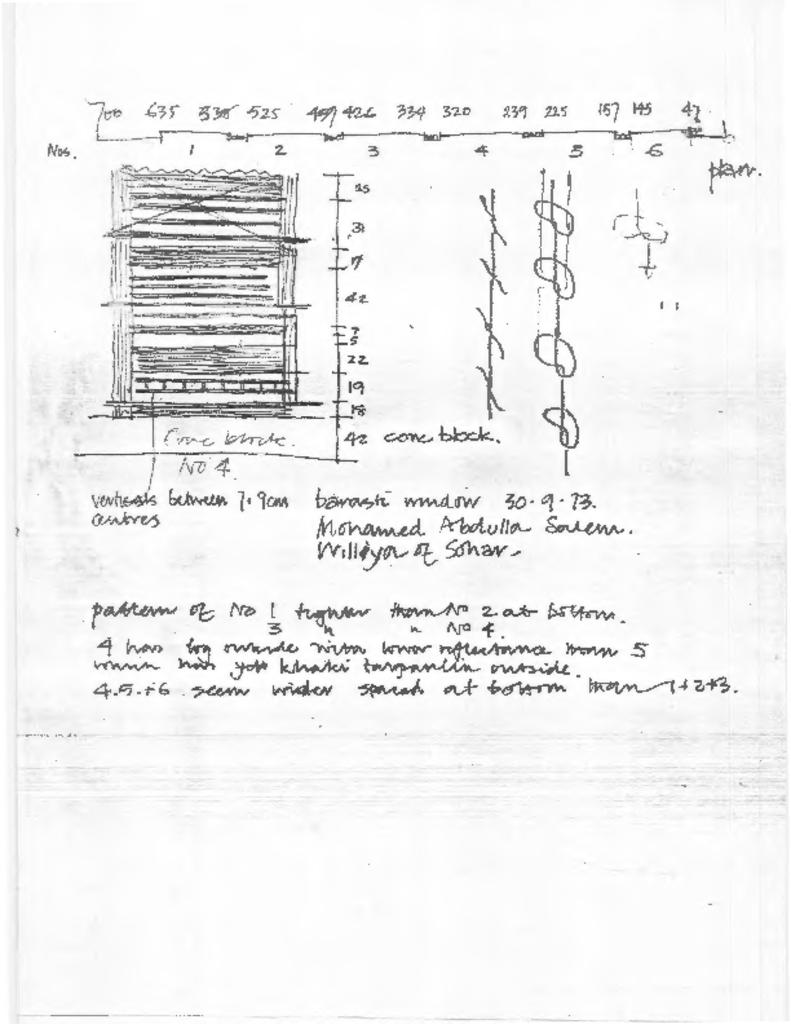 700 635 525 459 426 334 320 239 225 157 145 47
Nos. 1 2 3 4 5 6
plan.
25
31
17
42
7
5
22
19
18
42 conc block.
Conc block.
No 4.
verticals between 7.9cm
centres
barasti window 30.9.73.
Mohamed Abdulla Salem.
Willaya of Sohar.
pattern of No 1 tighter than No 2 at bottom.
3 " " No 4.
4 has outside with lower reflectance than 5
which has khaki tarpaulin outside.
4.5.+6 seem wider spaced at bottom than 1+2+3.